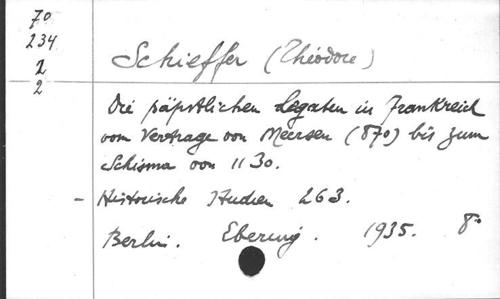 70
234
2
2
Schieffer (Théodore)
Die päpstlichen Legaten in Frankreich
vom Vertrage von Meersen (870) bis zum
Schisma von 1130.
- Historische Studien 263.
Berlin. Ebering. 1935. 8°